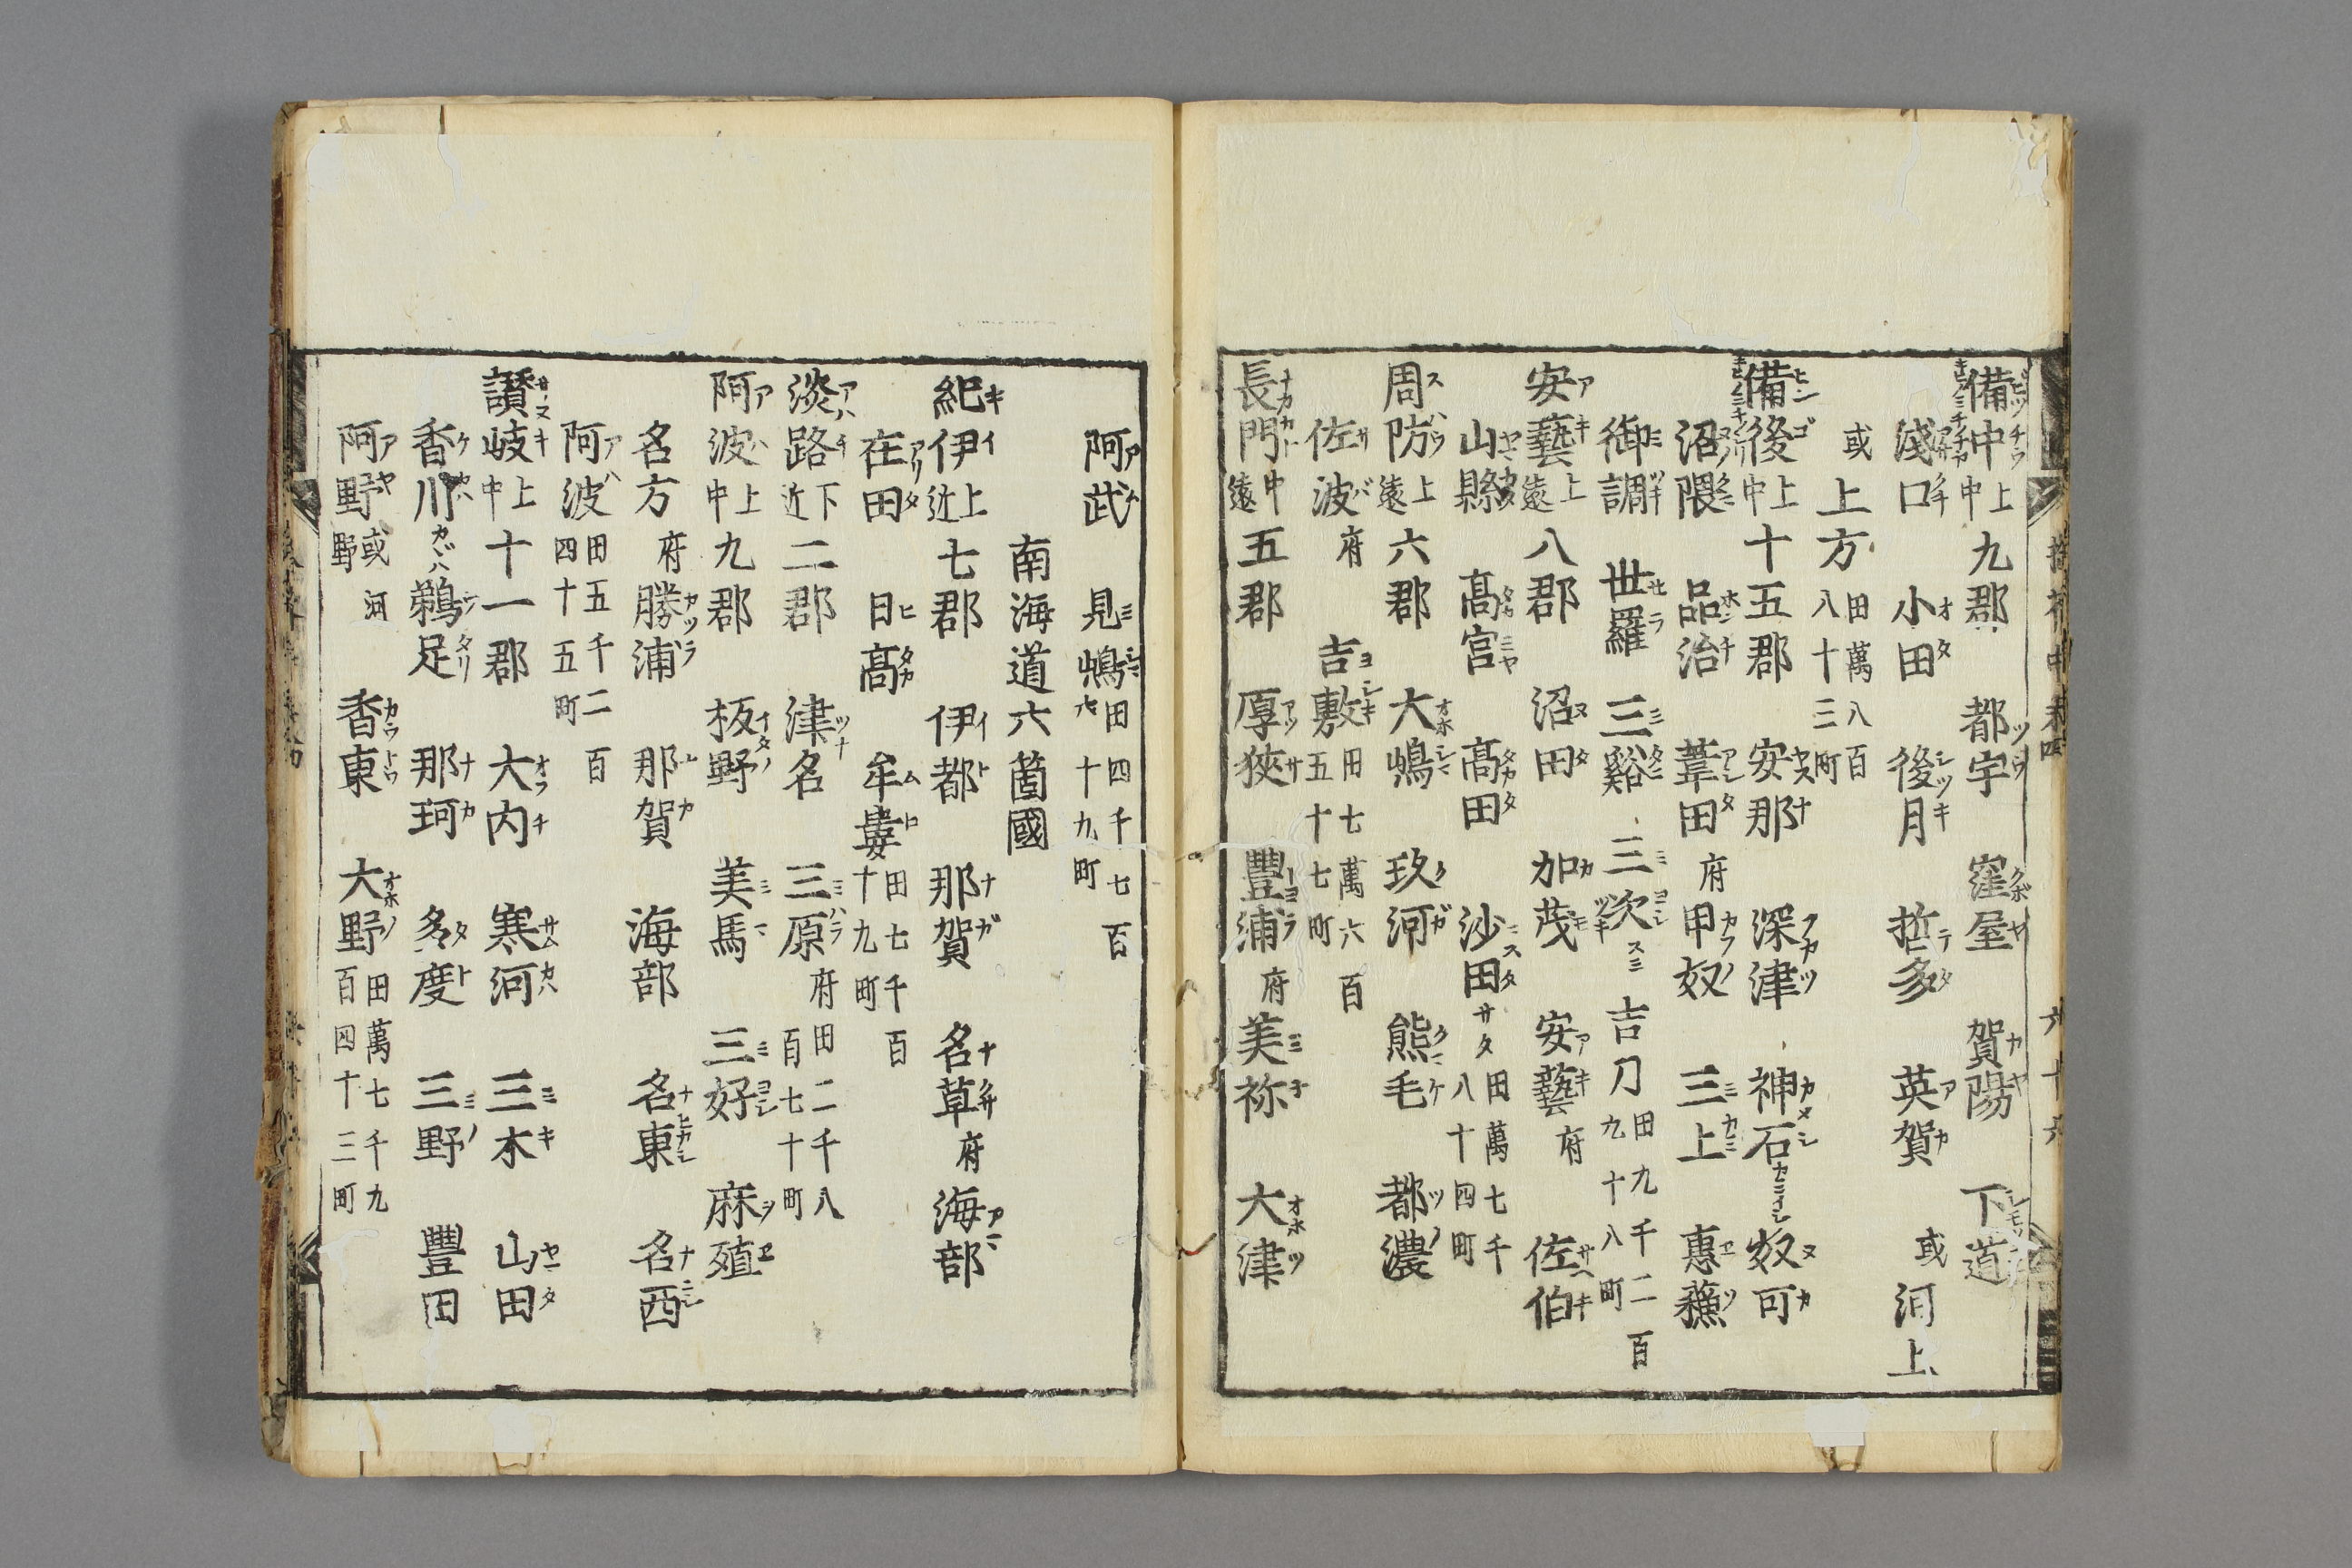 備中上中九郡 都宇 窪屋 賀陽 下道
淺口 小田 後月 哲多 英賀 或河上
或上方 田萬八百八十三町
備後上中十五郡 安那 深津 神石 奴可
沼隈 品治 葦田府 甲奴 三上 惠蘓
御調 世羅 三谿 三次 吉刀 田九千二百九十八町
安藝上遠八郡 沼田 加茂 安藝府 佐伯
山縣 髙宮 髙田 沙田 田萬七千八十四町
周防上遠六郡 大嶋 玖河 熊毛 都濃
佐波府 吉敷 田七萬六百五十七町
長門中遠五郡 厚狹 豐浦府 美祢 大津
阿武 見嶋 田四千七百六十九町
南海道六箇國
紀伊上近七郡 伊都 那賀 名草府 海部
在田 日髙 牟婁 田七千百十九町
淡路下近二郡 津名 三原府 田二千八百七十町
阿波上中九郡 板野 美馬 三好 麻殖
名方府 勝浦 那賀 海部 名東 名西
阿波 田五千二百四十五町
讃岐上中十一郡 大内 寒河 三木 山田
香川 鵜足 那珂 多度 三野 豐田
阿野或河野 香東 大野 田萬七千九百四十三町